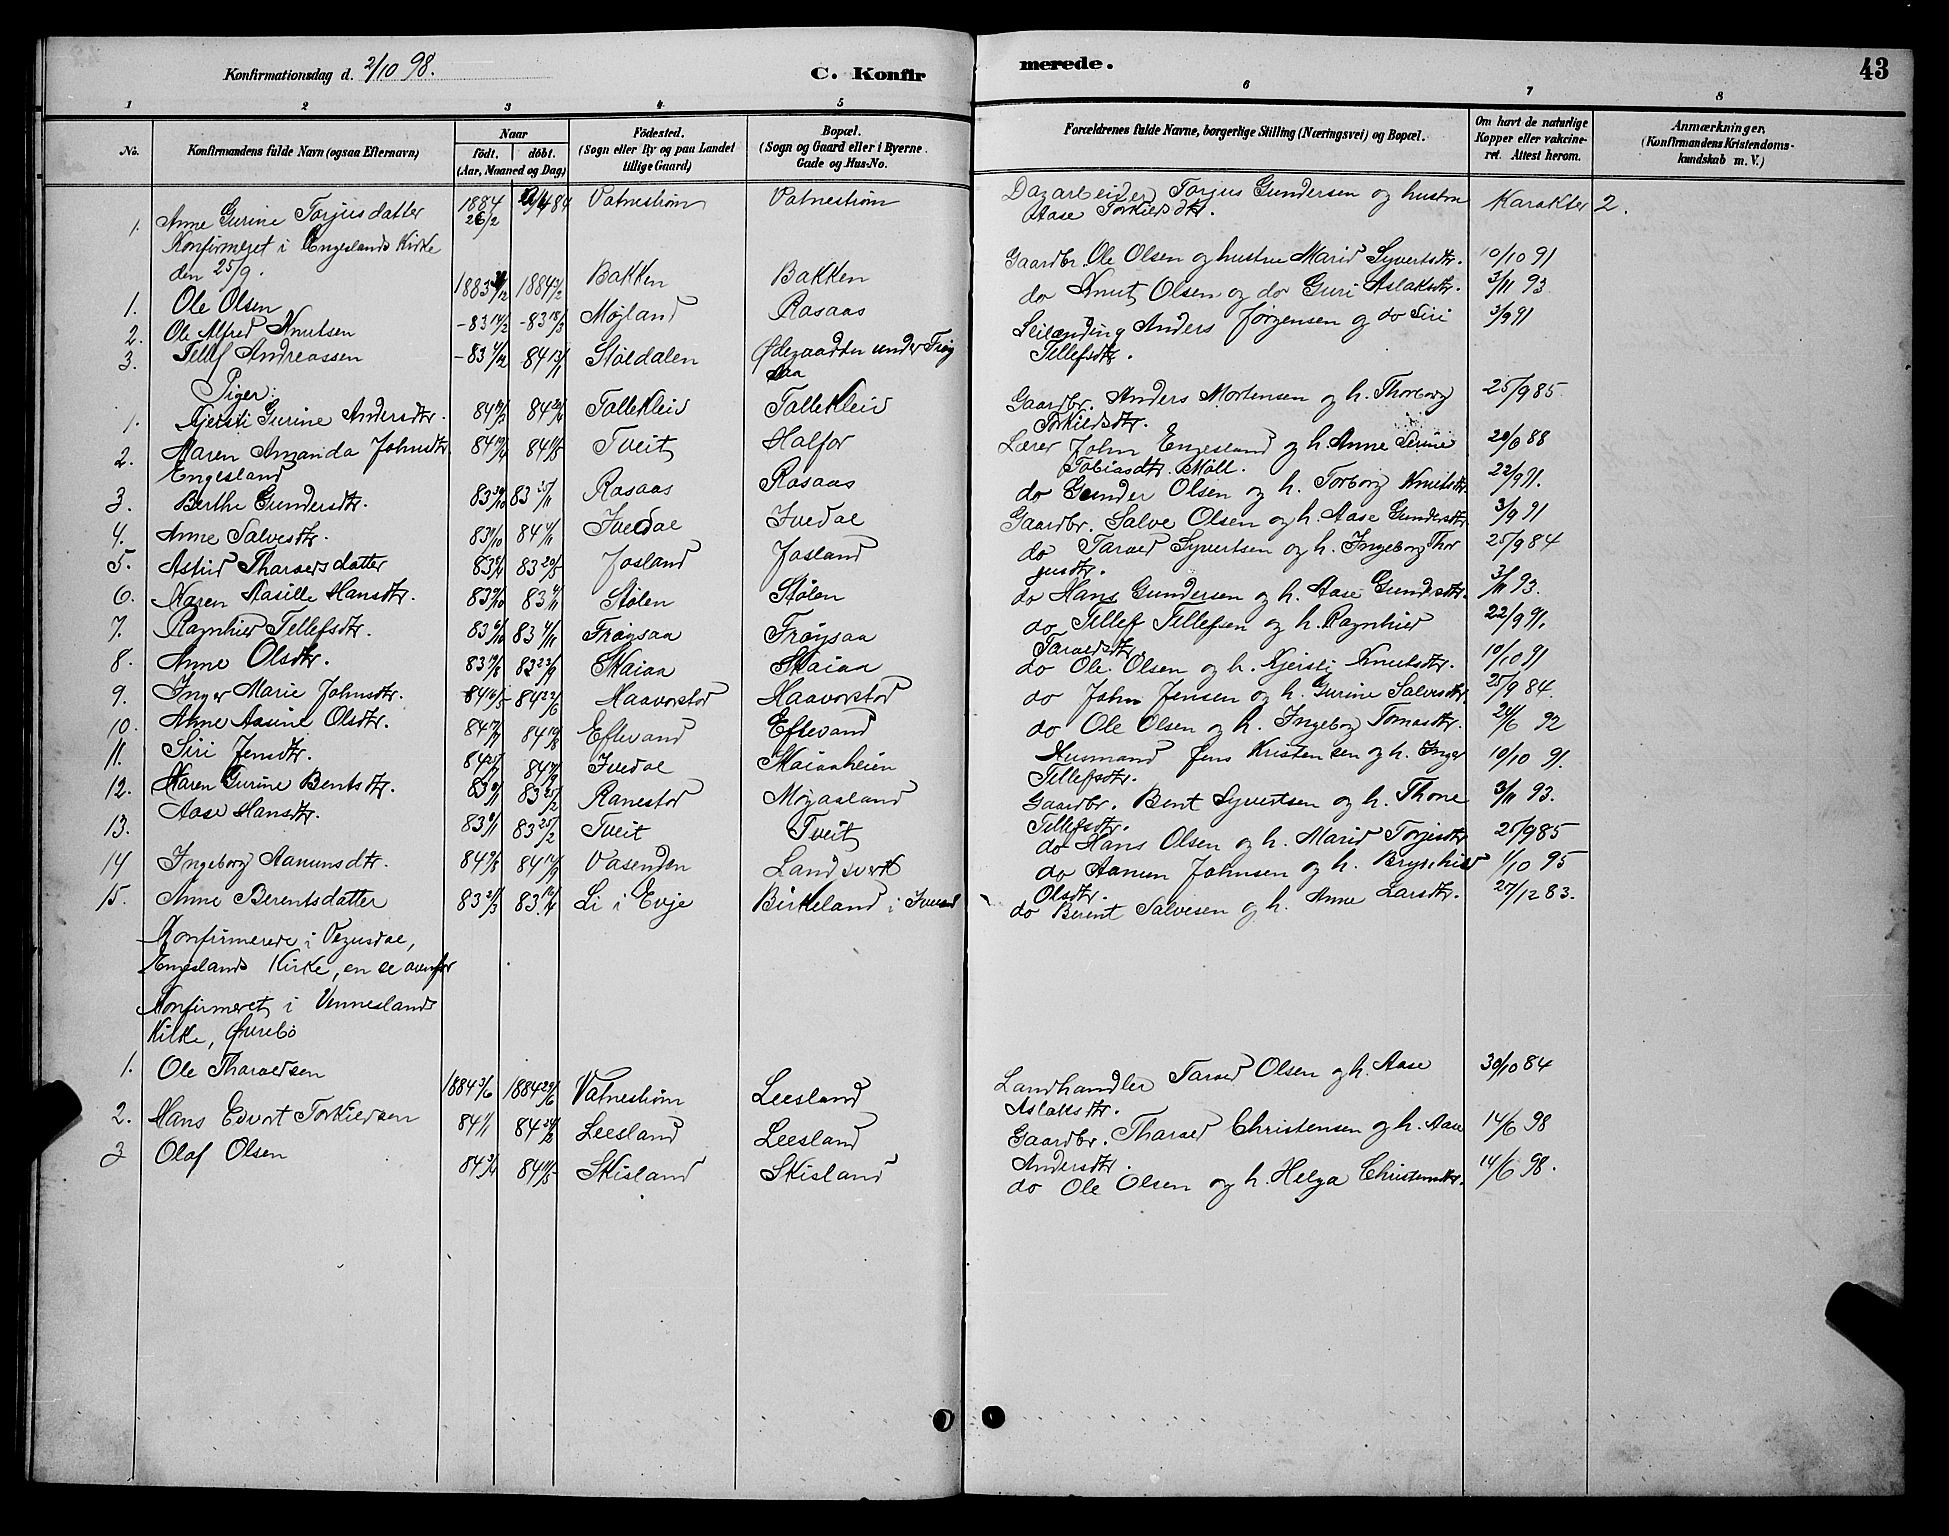 Konfirmationsdag d. 2/10 98.
C. Konfir
merede.
43
1 2 3 4 5 6 7 8
No.
Konfirmandens fulde Navn (ogsaa Efternavn)
Naar
födt. döbt.
(Aar, Maaned og Dag)
Födested.
(Sogn eller By og paa Landet tillige Gaard)
Bopæl.
(Sogn og Gaard eller i Byerne Gade og Hus-No.
Forældrenes fulde Navne, borgerlige Stilling (Næringsvei) og Bopæl.
Om havt de naturlige Kopper eller vakcineret. Attest herom.
Anmærkninger,
(Konfirmandens Kristendomskundskab m. V.)
1. Anne Gurine Torjusdatter 1884 26/2 84 Vatnestrøm Vatnestrøm Dagarbeider Torjus Gundersen og hustru Aase Torkildsdtr. Karakter 2.
Konfirmeret i Engeslands Kirke
den 25/9.
1. Ole Olsen 1883 /12 1884 /2 Bakken Bakken Gaardbr. Ole Olsen og hustru Marid Syvertsdtr. 10/10 91
2. Ole Alfred Knutsen -83 14/2 -83 18/3 Møjland Rosaas do Knut Olsen og do Guri Aslaksdtr. 3/11 93
3. Tellef Andreassen -83 /12 84 13/1 Støldalen Ødegaarden under Frøysaa Leilænding Anders Jørgensen og do Siri Tellefsdtr. 3/9 91
Piger:
1. Kjersti Gurine Andersdtr. 84 84 Tollekleiv Tollekleiv Gaardbr. Anders Mortensen og h. Thorborg Torkildsdtr. 25/9 85
2. Maren Amanda Johnsdtr. Engesland 84 84 Tveit Halfor Lærer John Engesland og h. Anne Serine Tobiasdtr. Möll. 20/8 88
3. Berthe Gundersdtr. 83 30/10 83 25/11 Rosaas Rosaas do Gunder Olsen og h. Torborg Knutsdtr. 22/9 91.
4. Anne Salvesdtr. 83 /10 84 /1 Ivedal Ivedal Gaardbr. Salve Olsen og h. Aase Gundersdtr. 3/9 91
5. Astrid Tharaldsdatter 83 83 20/5 Josland Josland do Taral Syvertsen og h. Ingeborg Thorjusdtr. 25/9 84
6. Karen Aasille Hansdtr. 83 /10 83 /11 Stølen Stølen do Hans Gundersen og h. Aase Gundersdtr. 3/11 93.
7. Ragnhild Tellefsdtr. 83 6/10 83 4/11 Frøysaa Frøysaa do Tellef Tellefsen og h. Ragnhild Taraldsdtr. 22/9 91.
8. Anne Olsdtr. 83 19/8 83 23/9 Skaiaa Skaiaa do Ole Olsen og h. Kjersti Knutsdtr. 10/10 91
9. Inger Marie Johnsdtr. 84 16/5 84 22/6 Haavorstad Haavorstad do John Jensen og h. Gurine Salvesdtr. 25/9 84.
10. Anne Aasine Olsdtr. 84 84 10/8 Eftevand Eftevand do Ole Olsen og h. Ingeborg Tomasdtr. 24/6 92
11. Siri Jensdtr. 84 84 /9 Ivedal Skaiaaheien Husmand Jens Kristensen og h. Inger Tellefsdtr. 10/10 91.
12. Karen Gurine Bentsdtr. 83 /1 83 25/2 Ranestad Møgaasland Gaardbr. Bent Syvertsen og h. Thone Tellefsdtr. 3/11 93.
13. Aase Hansdtr. 83 /1 83 25/2 Tveit Tveit do Hans Olsen og h. Marid Torjesdtr 25/9 85
14 Ingeborg Aanunsdtr. 84 84 14/9 Vasenden Landsverk do Aanun Johnsen og h. Brynhild Olsdtr. 1/10 95
15. Anne Berentsdatter 83 2/3 83 Li i Evje Birkeland i Iveland do Berent Salvesen og h. Anne Larsdtr. 27/12 83.
Konfirmerede i Vegusdal,
Engeslands Kirke, en se ovenfor
Konfirmeret i Venneslands
Kirke, Øvrebø
1. Ole Tharaldsen 1884 3/6 1884 29/6 Vatnestrøm Leesland Landhandler Taral Olsen og h. Aase Aslaksdtr. 30/10 84
2. Hans Edvart Torkildsen 84 1/1 84 24/3 Leesland Leesland Gaardbr. Tharald Christensen og h. Aase Andersdtr. 14/6 98
3 Olaf Olsen 84 3/4 84 11/5 Skisland Skisland do Ole Olsen og h. Helga Christensdtr. 14/6 98.